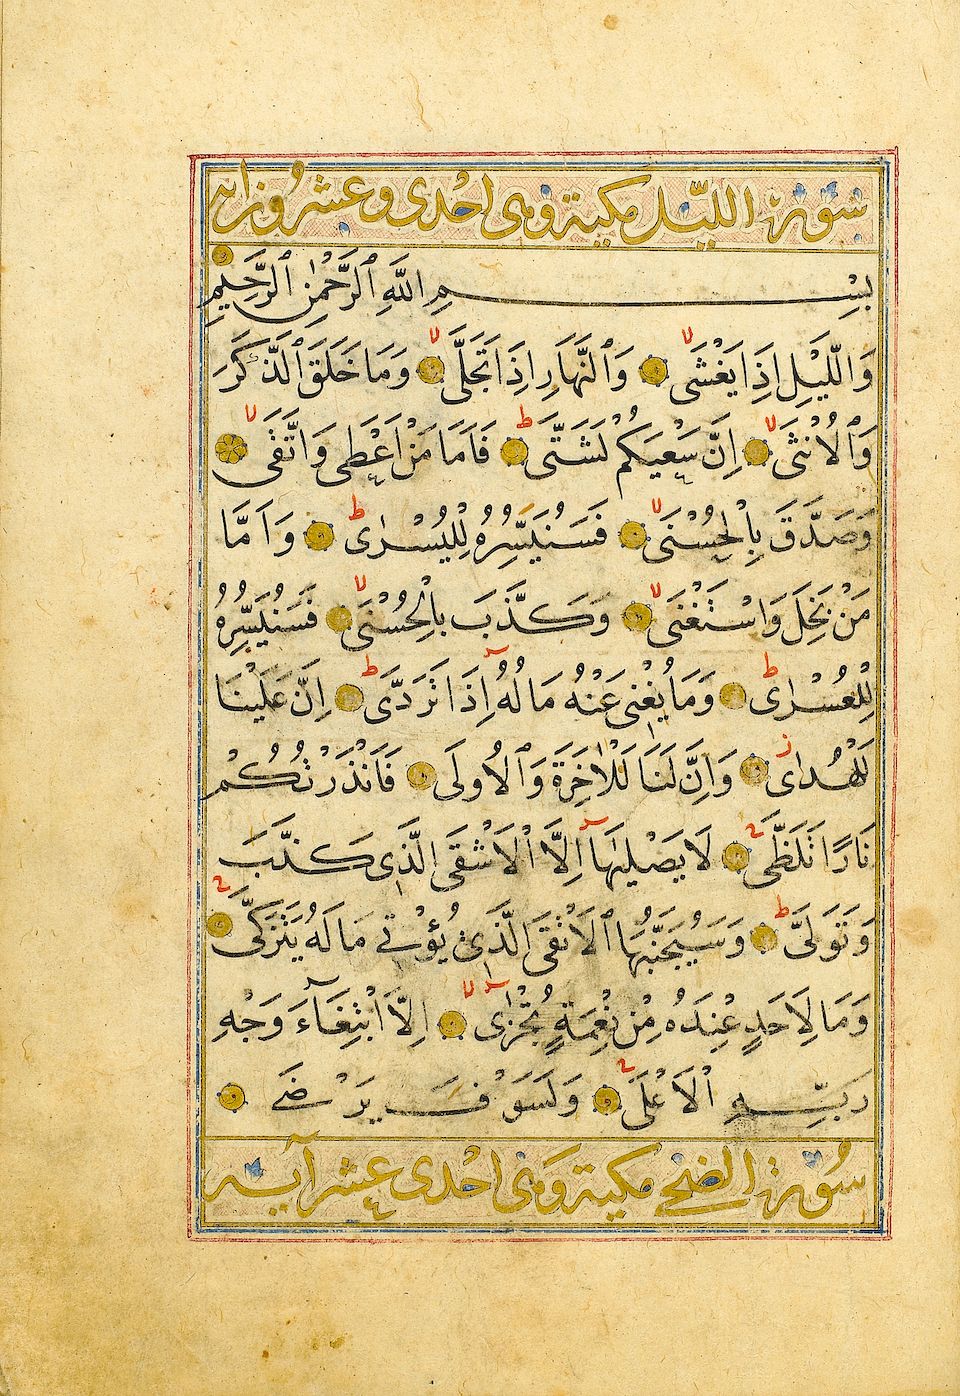 سورة الليل مكية وهى احدى وعشرون اية
بِسْمِ اللَّهِ ٱلرَّحْمٰنِ ٱلرَّحِيمِ
وَالَّيْلِ اِذَا يَغْشَى وَٱلنَّهَارِ اِذَا تَجَلَّى وَمَا خَلَقَ ٱلذَّكَرَ
وَٱلْاُنْثَى اِنَّ سَعْيَكُمْ لَشَتَّى فَاَمَّا مَنْ اَعْطَى وَاتَّقَى
وَصَدَّقَ بِالْحُسْنَى فَسَنُيَسِّرُهُ لِلْيُسْرٰى وَاَمَّا
مَنْ بَخِلَ وَاسْتَغْنَى وَكَذَّبَ بِالْحُسْنَى فَسَنُيَسِّرُهُ
لِلْعُسْرٰى وَمَا يُغْنِى عَنْهُ مَالُهُ اِذَا تَرَدَّى اِنَّ عَلَيْنَا
لَلْهُدٰى وَاِنَّ لَنَا لَلْاٰخِرَةَ وَٱلْاُولَى فَاَنْذَرْتُكُمْ
نَارًا تَلَظَّى لَا يَصْلٰيهَا اِلَّا ٱلْاَشْقَى الَّذِى كَذَّبَ
وَتَوَلَّى وَسَيُجَنَّبُهَا ٱلْاَتْقَى الَّذِى يُؤْتِى مَالَهُ يَتَزَكَّى
وَمَا لِاَحَدٍ عِنْدَهُ مِنْ نِعْمَةٍ تُجْزٰى اِلَّا ابْتِغَآءَ وَجْهِ
رَبِّهِ ٱلْاَعْلَى وَلَسَوْفَ يَرْضَى
سورة الضحى مكية وهى احدى عشر آية